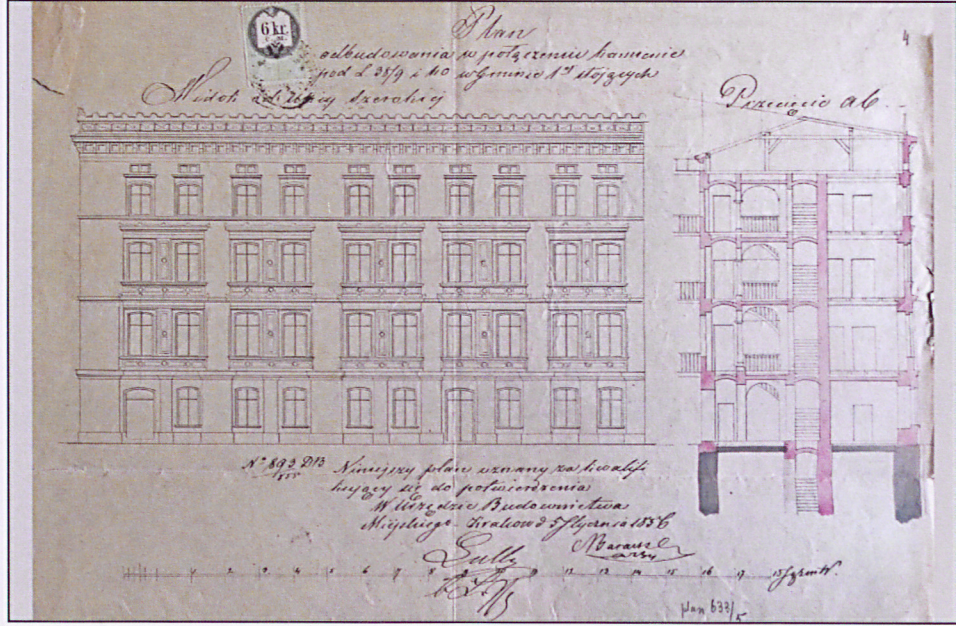 6 kr.
4
Plan
odbudowania w połączeniu kamienic
pod L 38/9 i 40 w Gminie 1ej stojących
Widok od ulicy Szerokiej
Przecięcie ab.
No 893 DB
855
Niniejszy plan uznany za kwalifi
kujący się do potwierdzenia
W Urzędzie Budownictwa
Miejskiego. Kraków d 5 Stycznia 1856
1 2 3 4 5 6 7 8 9 10 11 12 13 14 15 16 17 18 Sążni W.
plan 633/5